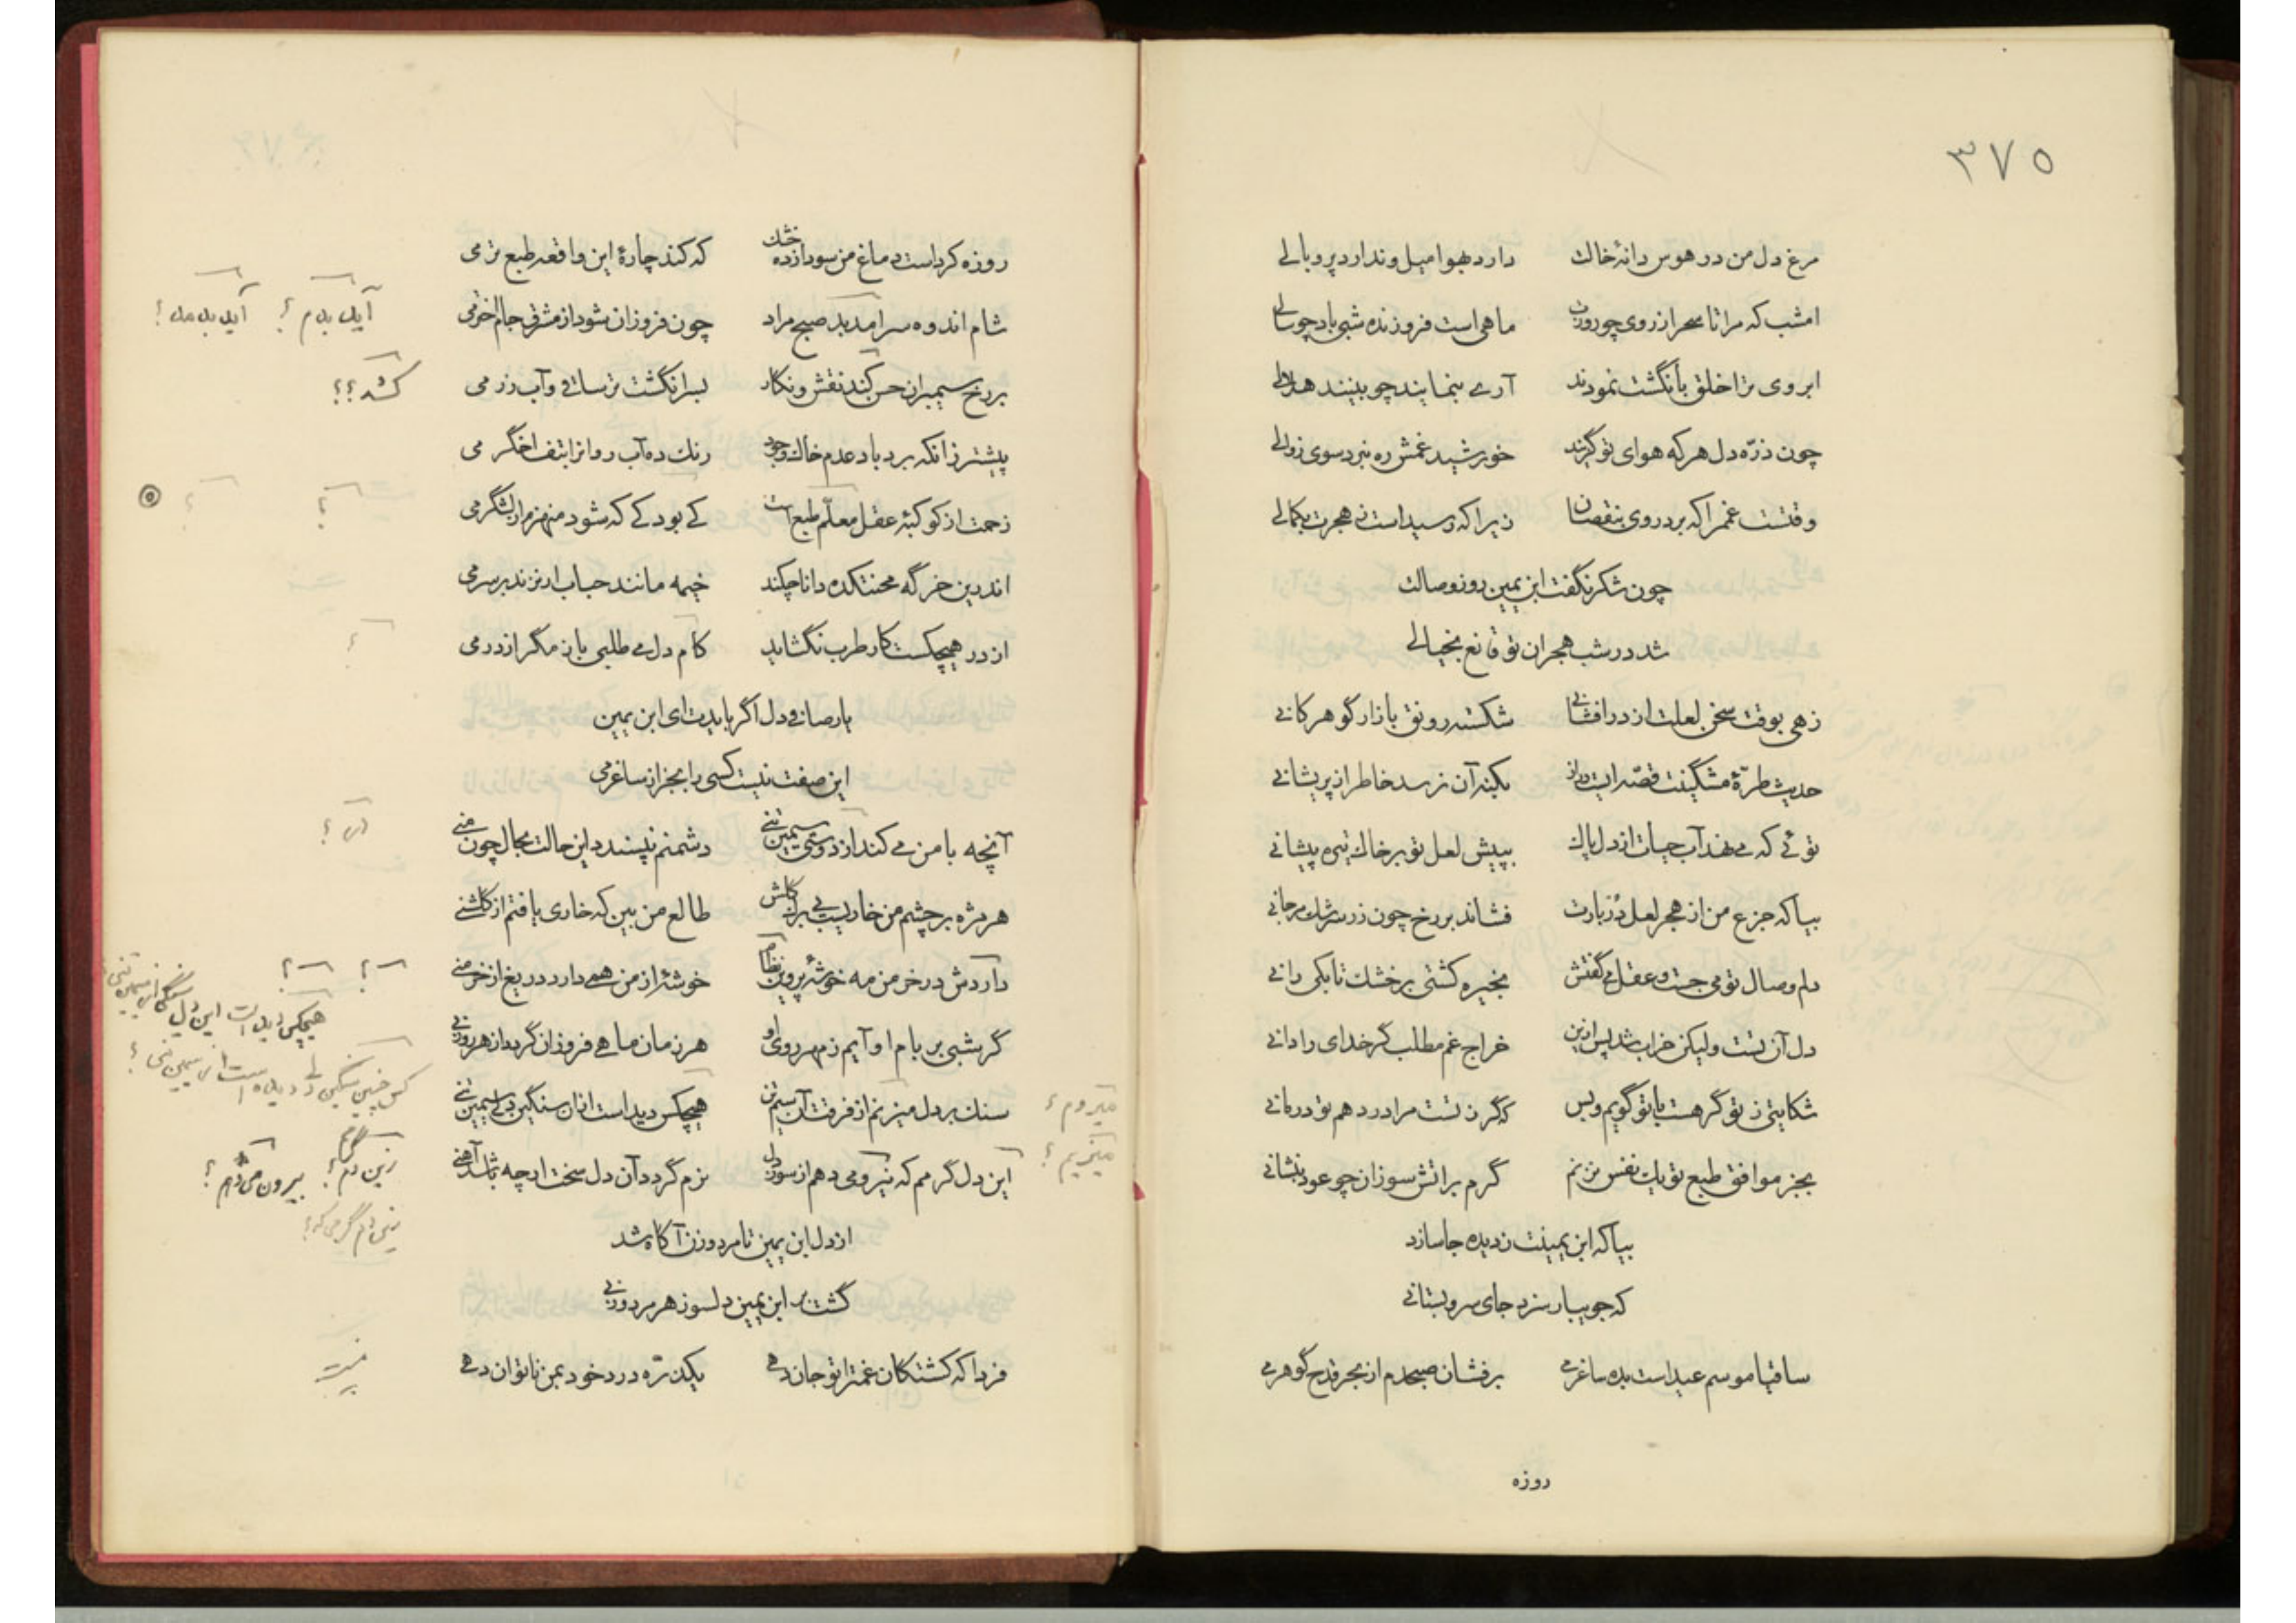 ۳۷۵
مرغ دل من در هوس دانهٔ خالت دارد بهوا میل و ندارد پر و بالی
امشب که مرا تا سحر از روی چو روزت ماهی است فروزنده شبی باد چو سالی
ابروی ترا خلق بأنگشت نمودند آری بنمایند چو بینند هلالی
چون ذرّه دل هر که هوای تو گزیند خورشید غمش ره نبرد سوی زوالی
وقتست غمم را که برد روی بنقصان زیرا که رسید است ز هجرت بکمالی
چون شکر نگفت ابن یمین روز وصالت
شد در شب هجران تو قانع بخیالی
زهی بوقت سخن لعلت از در افشانی شکسته رونق بازار گوهر کانی
حدیث طرّهٔ مشگینت قصّه ایست دراز بکنه آن نرسد خاطر از پریشانی
توئی که می نهد آب حیات از دل پاک بپیش لعل تو بر خاک تیره پیشانی
بیا که جزع من از هجر لعل دُرّبارت فشاند بر رخ چون زر سرشک مرجانی
دلم وصال تو می جست و عقل می گفتش بخیره کشتی بر خشک تا بکی رانی
دل آن تست ولیکن خراب شد پس ازین خراج غم مطلب گر خدای را دانی
شکایتی ز تو گر هست با تو گویم و بس که گر ز تست مرا درد هم تو درمانی
بجز موافق طبع تو یک نفس نزنم گرم بر اتش سوزان چو عود بنشانی
بیا که ابن یمینت ز دیده جا سازد
که جویبار سزد جای سرو بستانی
ساقیا موسم عید است بده ساغر می بر فشان صبحدم از بحر قدح گوهر می
روزه
روزه کرد است دماغ من سودا زده خشک که کند چارهٔ این واقعه طبع تر می
شام اندوه سرامد بدمد صبح مراد چون فروزان شود از مشرق جام اختر می
بر رخ سیمبران حسن کند نقش و نگار بسر انگشت تر ساقی و آب زر می
پیشتر زانکه برد باد عدم خاک وجود رنک ده آب روانرا بتف اخگر می
زحمت از کوکبهٔ عقل معلّم طبع است کی بود کی که شود منهزم از لشگر می
اندرین خرگه محنتکده دانا چکند خیمه مانند حباب ار نزند بر سر می
از در هیچکست کار طرب نگشاید کام دل می طلبی باز مگرد از در می
یار صافی دل اگر بایدت ای ابن یمین
این صفت نیست کسی را بجز از ساغر می
آنچه با من می کند از دوستی سیمین تنی دشمنم نپسندد این حالت بحال چون منی
هر مژه بر چشم من خاریست بی برگ گلش طالع من بین که خاری یافتم از گلشنی
دارد ش در خرمن مه خوشهٔ پروین نظام خوشهٔ از من همی دارد دریغ از خرمنی
گر شبی بر بام او آیم ز مهر روی او هر زمان ماهی فروزان گردد از هر روزنی
سنک بر دل میزنم از فرقت آن سیمتن هیچکس دید است ازان سنگین دلی سیمین تنی
این دل گرمم که نیرو می دهم از سوز دل نرم گردد آن دل سخت ار چه باشد آهنی
از دل ابن یمین تا مرد و زن آگاه شد
گشت بر ابن یمین دلسوز هر مرد و زنی
فردا که کشتگان غمترا تو جان دهی یکذرّه درد خود بمن ناتوان دهی
کشد ؟؟
میزنیم ؟